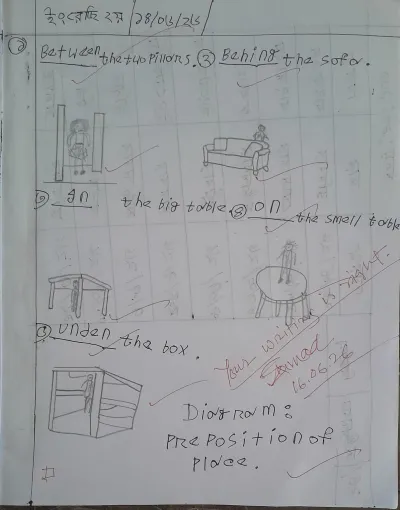 ইংরেজি ২য় 18/06/26
① Between the two pillors. ② Behing the sofa.
③ In the big table. ④ on the small table
⑤ Unden the box.
Your writing is right.
16.06.26
Diagram:
PrePosition of
Place.